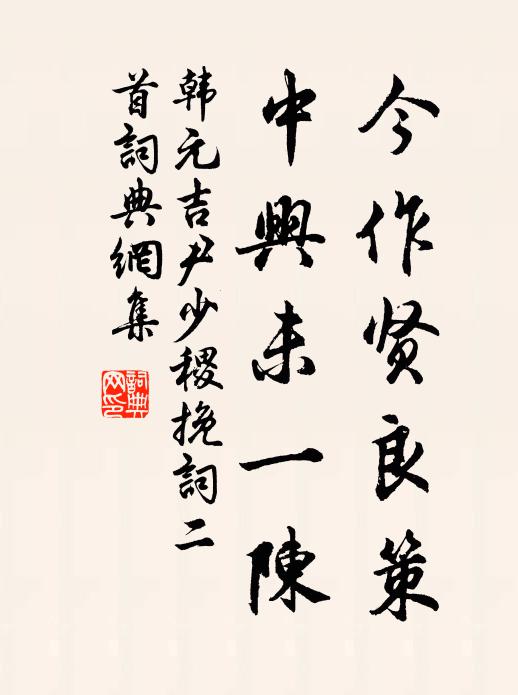 今作贤良策
中興未一陳
韩元吉尹少稷挽詞二
首詞典網集
詞典
网印